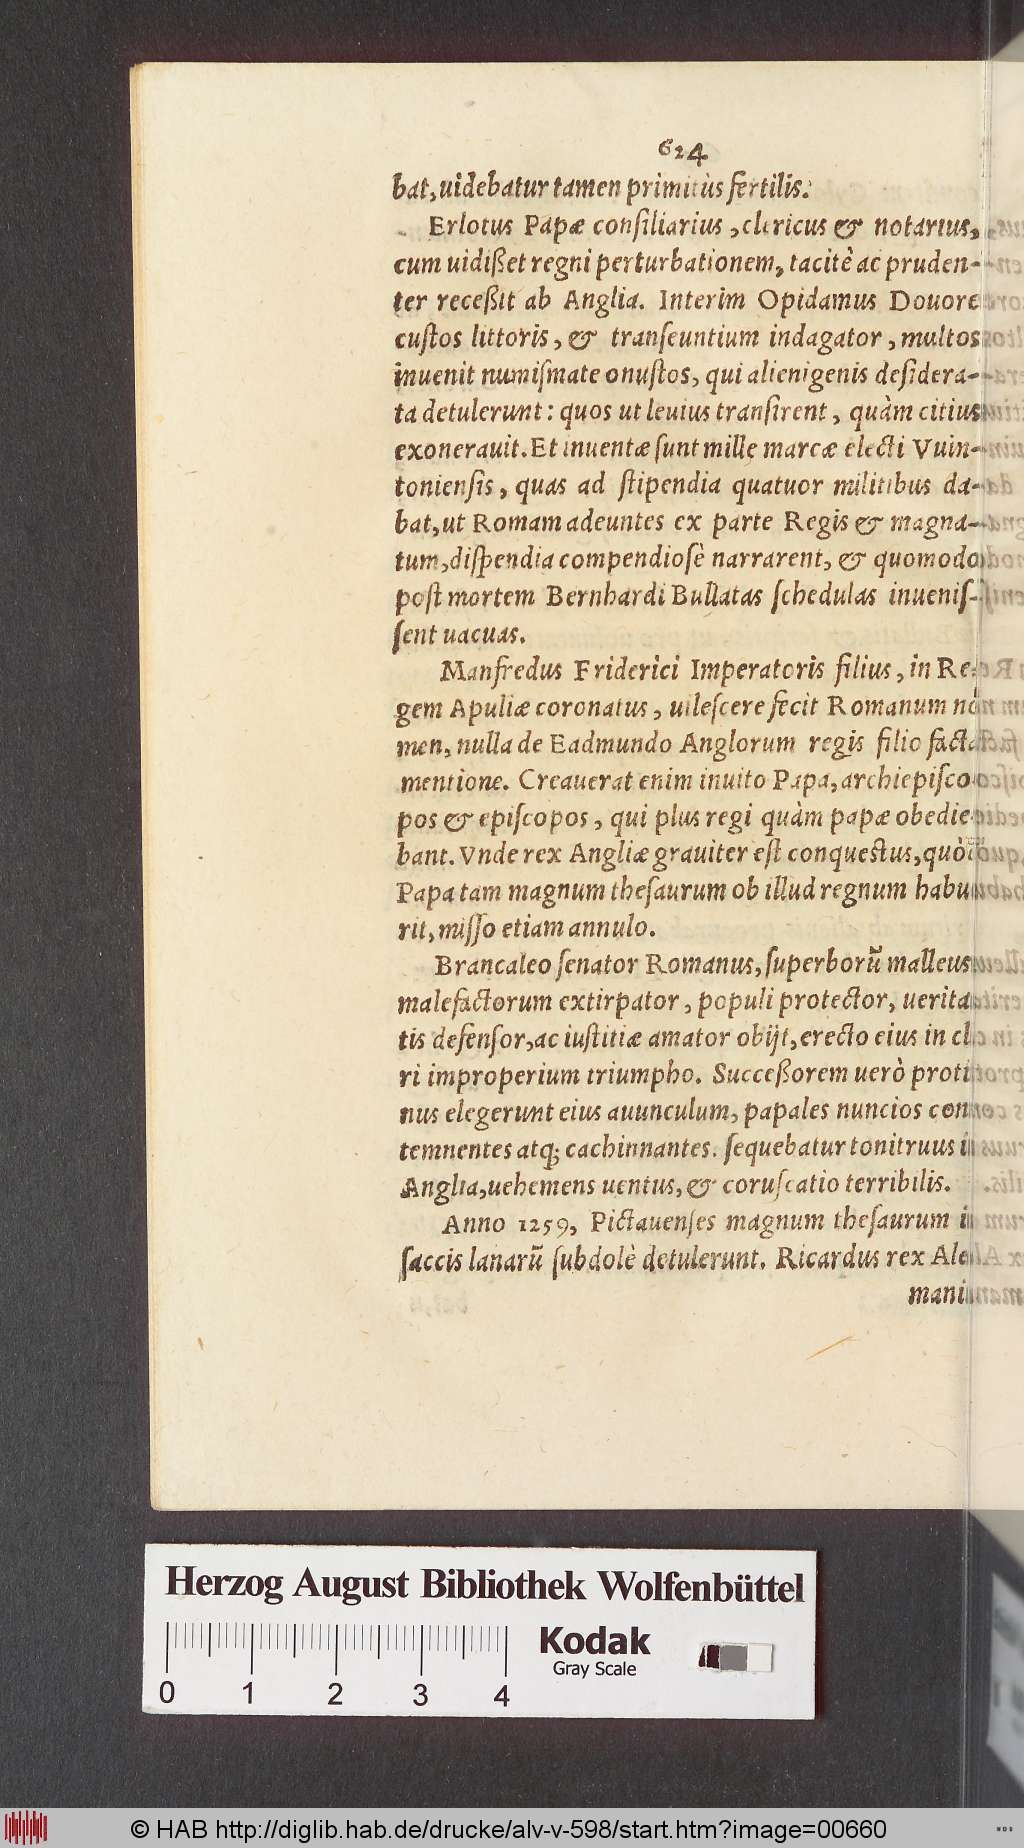 624
bat, uidebatur tamen primitùs fertilis.
Erlotus Papæ consiliarius, clericus & notarius,
cum uidißet regni perturbationem, tacitè ac pruden-
ter receßit ab Anglia. Interim Opidamus Douore
custos littoris, & transeuntium indagator, multos
inuenit numismate onustos, qui alienigenis desidera-
ta detulerunt: quos ut leuius transirent, quàm citius
exonerauit. Et inuentæ sunt mille marcæ electi Vuin-
toniensis, quas ad stipendia quatuor militibus da-
bat, ut Romam adeuntes ex parte Regis & magna-
tum, dispendia compendiosè narrarent, & quomodo
post mortem Bernhardi Bullatas schedulas inuenis-
sent uacuas.
Manfredus Friderici Imperatoris filius, in Re-
gem Apuliæ coronatus, uilescere fecit Romanum no
men, nulla de Eadmundo Anglorum regis filio facta
mentione. Creauerat enim inuito Papa, archiepisco
pos & episcopos, qui plus regi quàm papæ obedie
bant. Vnde rex Angliæ grauiter est conquestus, quòd
Papa tam magnum thesaurum ob illud regnum habu
rit, misso etiam annulo.
Brancaleo senator Romanus, superborũ malleus
malefactorum extirpator, populi protector, uerita
tis defensor, ac iustitiæ amator obijt, erecto eius in cl
ri improperium triumpho. Succeßorem uerò proti
nus elegerunt eius auunculum, papales nuncios con
temnentes atq; cachinnantes. sequebatur tonitruus i
Anglia, uehemens uentus, & coruscatio terribilis.
Anno 1259, Pictauenses magnum thesaurum i
saccis lanarũ subdolè detulerunt. Ricardus rex Ale
mani
Herzog August Bibliothek Wolfenbüttel
Kodak
Gray Scale
0 1 2 3 4
© HAB http://diglib.hab.de/drucke/alv-v-598/start.htm?image=00660